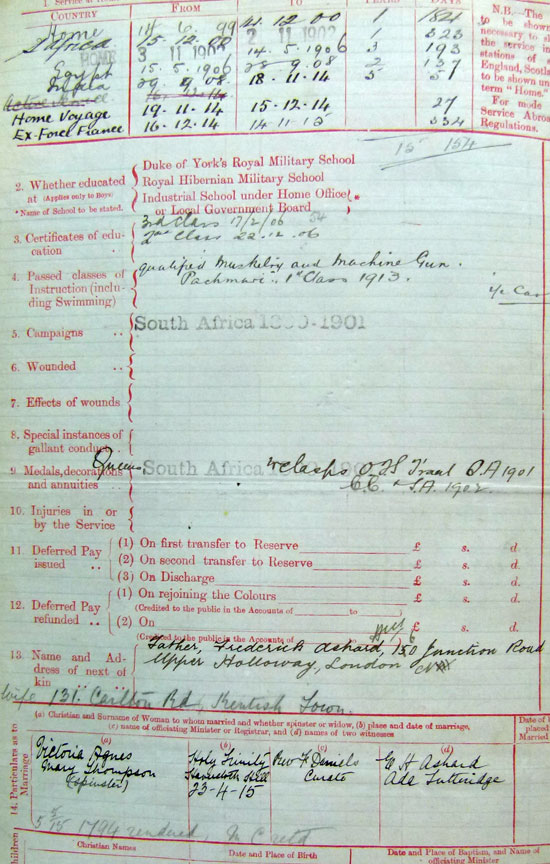 COUNTRY FROM TO YEARS DAYS
Home 14 6 99 21.12.00 1
S. Africa 25.12.00 2 11 1902 1 323
HOME 3 11 1902 14.5.1906 3 193
Egypt 15.5.1906 28.9.08 2 137
India 29.9.08 18.11.14 5 51
Home Voyage 19.11.14 15.12.14 27
Ex-Force France 16.12.14 14 11 15 334
15 154
N.B.—The
to be shown
necessary to s
the service in
stations of
England, Scotl
to be shown un
term "Home."
For mode
Service Abroa
Regulations.
2. Whether educated at (Applies only to Boys)
* Name of School to be stated.
Duke of York's Royal Military School
Royal Hibernian Military School
Industrial School under Home Office
or Local Government Board
3. Certificates of education
3rd Class 17/2/06
2nd Class 22.12.06
4. Passed classes of Instruction (including Swimming)
qualified Musketry and Machine Gun.
Pachmari. 1st Class 1913.
5. Campaigns
South Africa 1899-1901
6. Wounded
7. Effects of wounds
8. Special instances of gallant conduct
9. Medals, decorations and annuities
Queens South Africa w clasps O.F.S Trans S.A 1901
C.C. & S.A. 1902.
10. Injuries in or by the Service
11. Deferred Pay issued
(1) On first transfer to Reserve £ s. d.
(2) On second transfer to Reserve £ s. d.
(3) On Discharge £ s. d.
12. Deferred Pay refunded
(1) On rejoining the Colours £ s. d.
(Credited to the public in the Accounts of to )
(2) On £ s. d.
(Credited to the public in the Accounts of to )
13. Name and Address of next of kin
Father, Frederick Ashard, 150 Junction Road
Upper Holloway, London
Wife 131 Carlton Rd, Kentish Town.
14. Particulars as to Marriage
(a) Christian and Surname of Woman to whom married and whether spinster or widow, (b) place and date of marriage,
(c) name of officiating Minister or Registrar, and (d) names of two witnesses
Date of
placed
Married
(a) (b) (c) (d)
Victoria Agnes Holy Trinity Rev F Daniels G H Ashard
Mary Thompson Curate Ada Lutteridge
(Spinster) 23-4-15
Christian Names
Date and Place of Birth
Date and Place of Baptism, and Name of officiating Minister